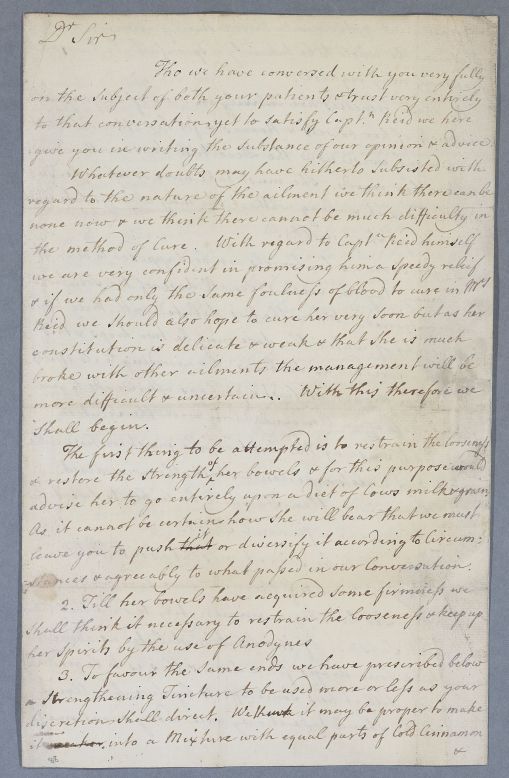 Dr Sir
Tho we have conversed with you very fully
on the subject of both your patients & trust very entirely
to that conversation, yet to satisfy Captn Reid we here
give you in writing the substance of our opinion & advice.
Whatever doubts may have hitherto subsisted with
regard to the nature of the ailment we think there can be
none now & we think there cannot be much difficulty in
the method of Cure. With regard to Captn Reid himself
we are very confident in promising him a speedy relief
& if we had only the same foulness of blood to cure in Mrs
Reid we should also hope to cure her very soon but as her
constitution is delicate & weak & that she is much
broke with other ailments the management will be
more difficult & uncertain. With this therefore we
shall begin.
The first thing to be attempted is to restrain the looseness
& restore the strength of her bowels & for this purpose would
advise her to go entirely upon a diet of Cows milk & grain
As it cannot be certain how she will bear that we must
leave you to push that it or diversify it according to Circum:
stances & agreably to what passed in our Conversation.
2. Till her bowels have acquired some firmness we
shall think it necessary to restrain the looseness & keep up
her spirits by the use of Anodynes
3. To favour the same ends we have prescribed below
a Strengthening Tincture to be used more or less as your
discretion shall direct. We think it may be proper to make
it into a Mixture with equal parts of Cold Cinnamon
&